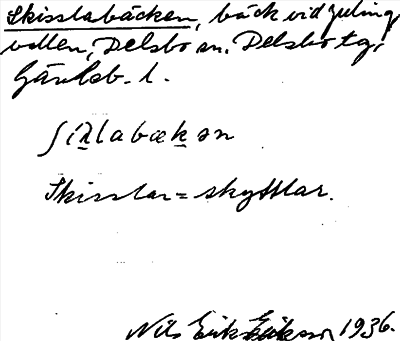 Skisslabäcken, bäck vid Juling
vallen, Delsbo sn. Delsbo tg.
Gävleb. l.
ʃiʟlabækən
Skisslar = skyttlar.
Nils Erik Eriksson 1936.